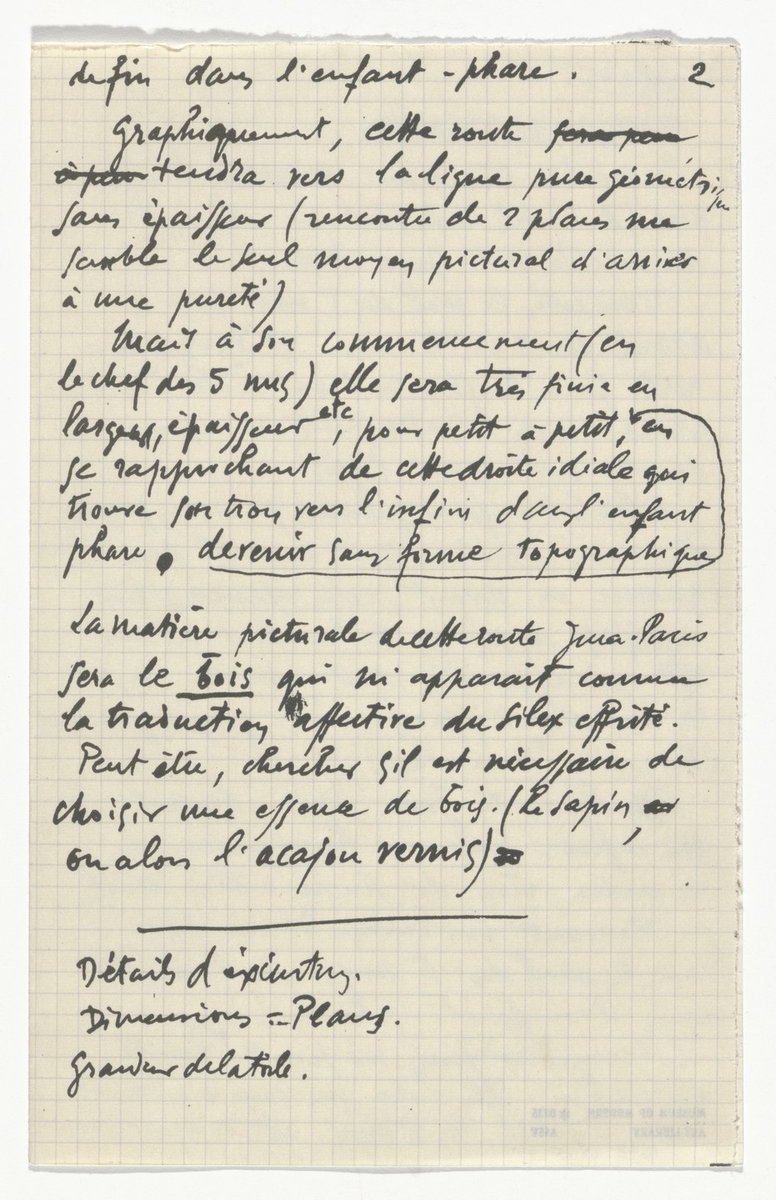 de fin dans l'enfant-phare. 2
Graphiquement, cette route
tendra vers la ligne pure géométrique
sans épaisseur (rencontre de 2 plans me
semble le seul moyen pictural d'arriver
à une pureté)
Mais à son commencement (en
le chef des 5 nus) elle sera très finie en
largeur, épaisseur etc, pour petit à petit, en
se rapprochant de cette droite idéale qui
trouve son trou vers l'infini dans l'enfant
phare. devenir sans forme topographique
La matière picturale de cette route Jura-Paris
sera le bois qui m'apparait comme
la traduction affective du silex effrité.
Peut être, chercher s'il est nécessaire de
choisir une essence de bois. (le sapin,
ou alors l'acajou vernis)
Détails d'exécution.
Dimensions = Plans.
Grandeur de la toile.